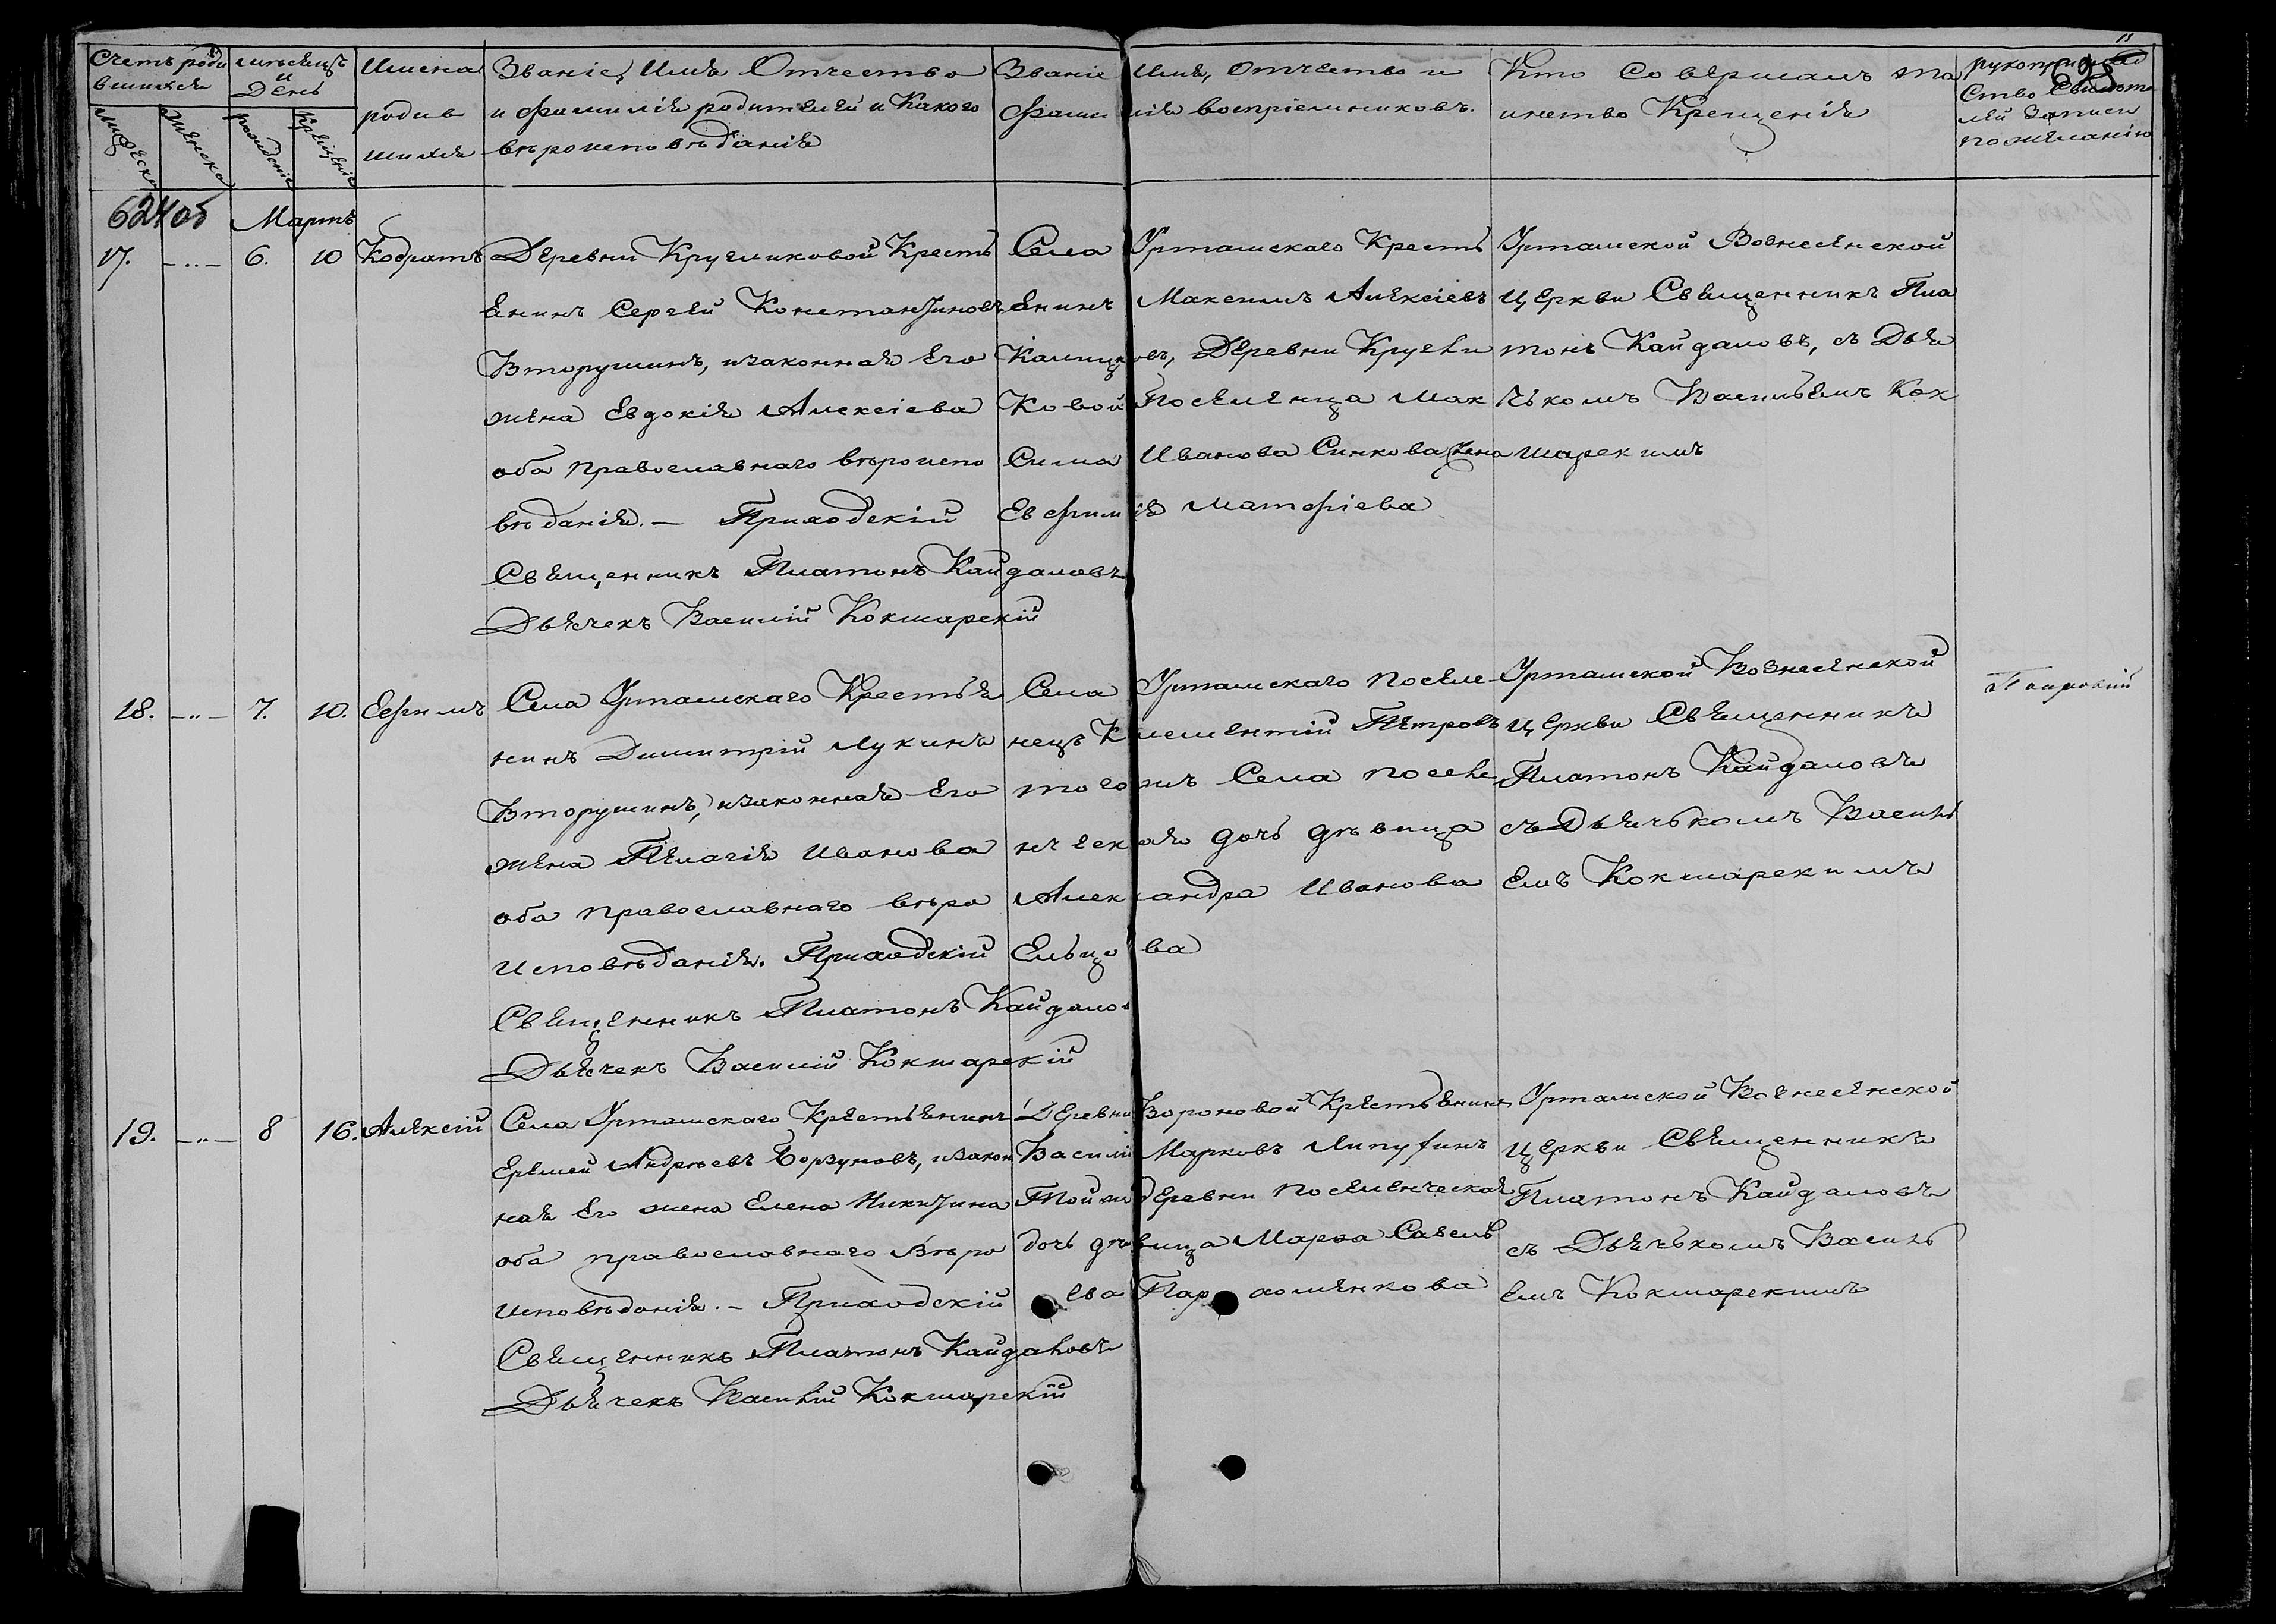 Счетъ роди
вшихся
мѣсяцъ
и
День
Имена
родив
шихся
Званіе, Имя Отчество
и Фамилія родителей и Какого
вѣроисповѣданія
Званіе Имя, Отчество и
Фамилія воспріемниковъ.
Кто Совершалъ та
инство Крещенія
рукоприклад
Ство Свидѣте
лей Записи
по желанію
Мужеска
Женска
рожденіе
Крещеніе
624об
Мартъ
17.
6.
10
Кодратъ
Деревни Кругликовой Кресть
Янинъ Сергей Константиновъ
Вторушинъ, изаконная Его
жена Евдокія Алексіева
оба православнаго вѣроиспо
вѣданія. — Приходскій
Священникъ Платонъ Кайдаловъ
Дьячекъ Василій Кокшарскій
Села Уртамскаго Кресть
Янинъ Максимъ Алексіевъ
Деревни Кругли
Ковой Поселенца Мак
Сима Иванова Синкова жена
Евфимія Матфіева
Уртамской Вознесенской
Церкви Священникъ Пла
тонъ Кайдаловъ, съ Дья
чькомъ Васильемъ Кок
шарскимъ
18.
7.
10.
Ефимъ
Села Уртамскаго Крестья
нинъ Димитрій Лукинъ
Вторушинъ, изаконная Его
жена Пелагія Иванова
оба православнаго вѣро
Исповѣданія. Приходскій
Священникъ Платонъ Кайдало
Дьячекъ Василій Кокшарскій
Села Уртамскаго поселе
нецъ Клементій Петровъ
тогожъ Села поселе
нческая дочь дѣвица
Александра Иванова
Ельцова
Уртамской Вознесенской
Церкви Священникъ
Платонъ Кайдаловъ
съ Дьячькомъ Василь
Емъ Кокшарскимъ
19.
8
16.
Алексій
Села Уртамскаго Крестьянинъ
Еремей Андреевъ Борзуновъ, изакон
ная Его жена Елена Никитина
оба православнаго Вѣро
исповѣданія. — Приходскій
Священникъ Платонъ Кайдаловъ
Дьячекъ Василій Кокшарскій
Деревни Вороновой Крестьянинъ
Василій Марковъ Липутинъ
Той ж Деревни поселенческая
дочь дѣвица Марѳа Савель
ева Пархоменкова
Уртамской Вознесенской
Церкви Священникъ
Платонъ Кайдаловъ
съ Дьячькомъ Василь
Емъ Кокшарскимъ